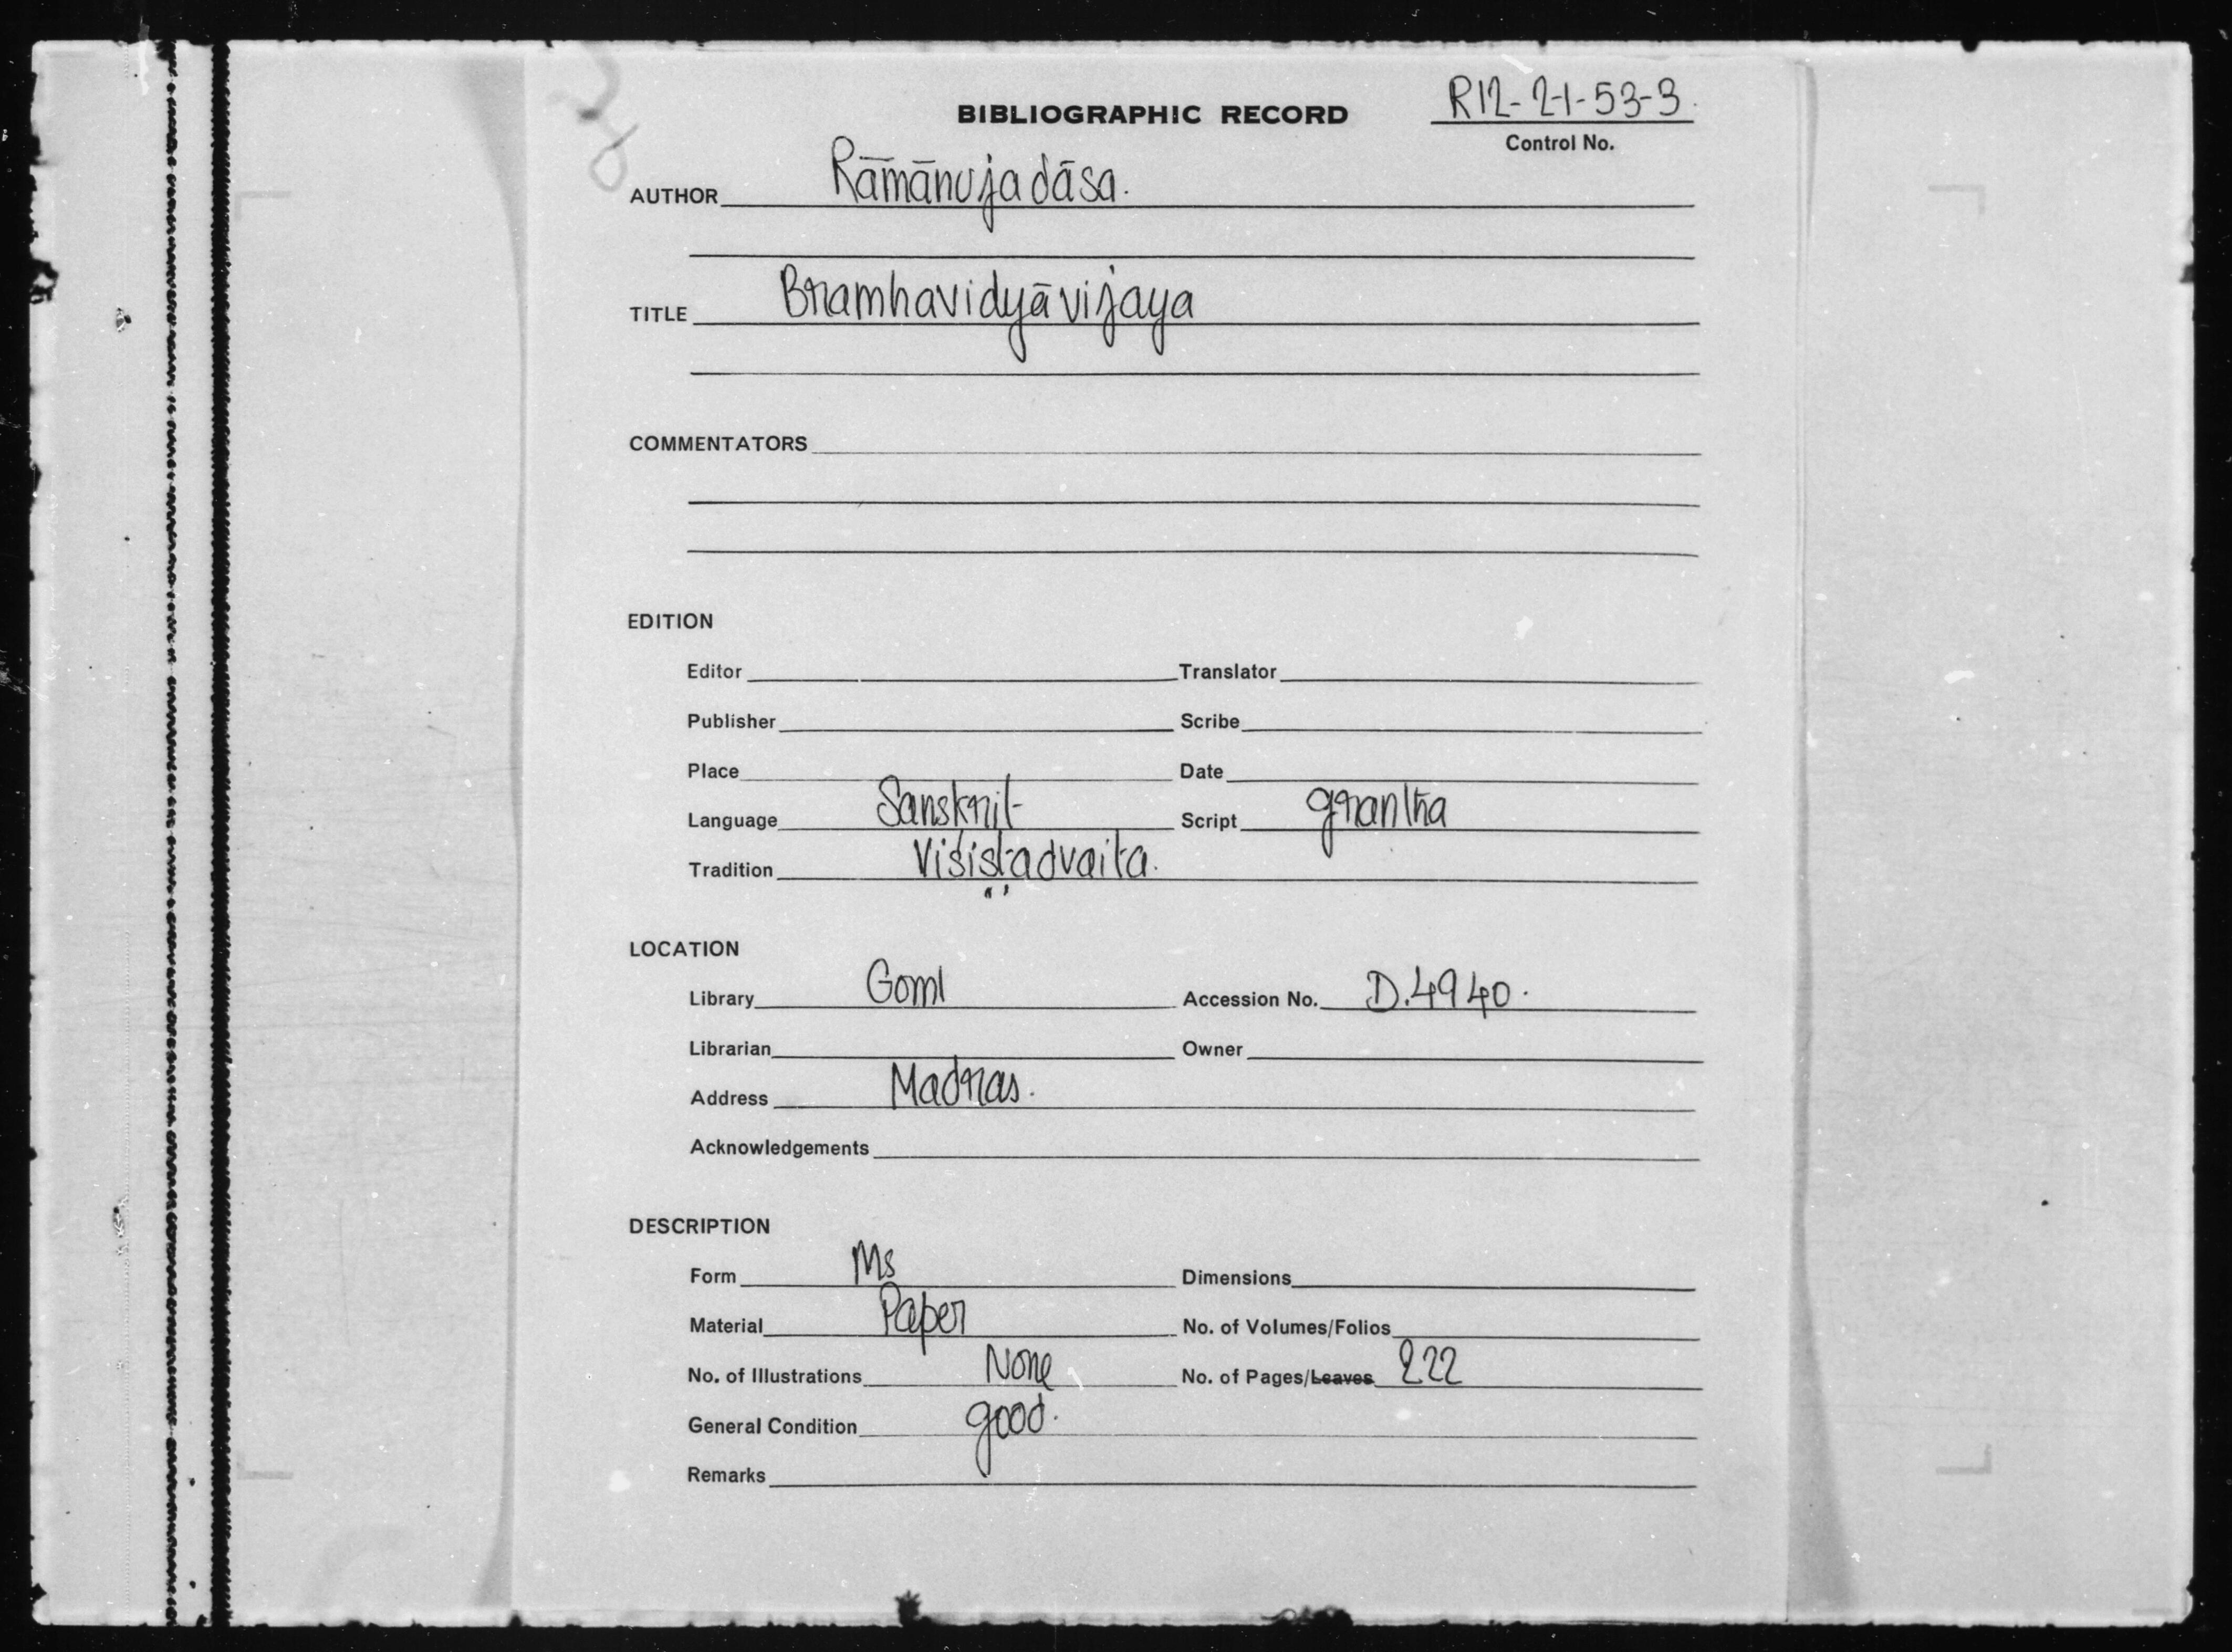 R12-21-53-3.
BIBLIOGRAPHIC RECORD
Control No.
AUTHOR Rāmānujadāsa.
TITLE Bramhavidyāvijaya
COMMENTATORS
EDITION
Editor Translator
Publisher Scribe
Place Date
Language Sanskrit Script grantha
Tradition Viśiṣṭadvaita.
LOCATION
Library Goml Accession No. D.4940.
Librarian Owner
Address Madras.
Acknowledgements
DESCRIPTION
Form Ms Dimensions
Material Paper No. of Volumes/Folios
No. of Illustrations None No. of Pages/Leaves 222
General Condition good.
Remarks